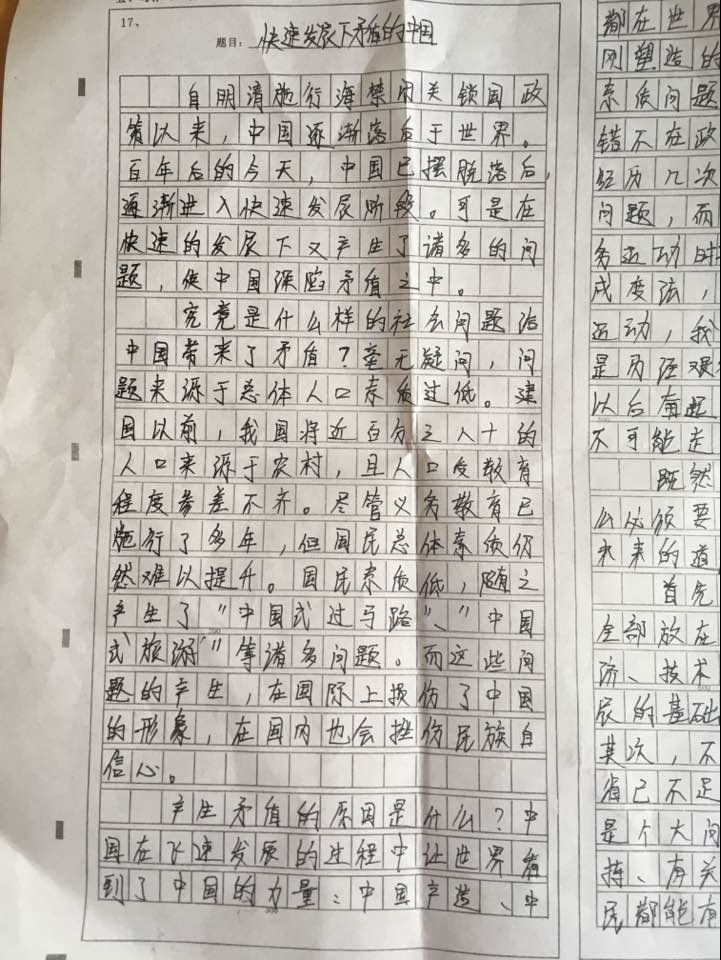 17、
题目：快速发展下矛盾的中国
自明清施行海禁闭关锁国政
策以来，中国逐渐落后于世界。
百年后的今天，中国已摆脱落后，
逐渐进入快速发展阶段。可是在
快速的发展下又产生了诸多的问
题，使中国深陷矛盾之中。
究竟是什么样的社会问题给
中国带来了矛盾？毫无疑问，问
题来源于总体人口素质过低。建
国以前，我国将近百分之八十的
人口来源于农村，且人口受教育
程度参差不齐。尽管义务教育已
施行了多年，但国民总体素质仍
然难以提升。国民素质低，随之
产生了“中国式过马路”、“中国
式旅游”等诸多问题。而这些问
题的产生，在国际上损伤了中国
的形象，在国内也会挫伤民族自
信心。
产生矛盾的原因是什么？中
国在飞速发展的过程中让世界看
到了中国的力量：中国产造、中
都在世界
刚塑造的
素质问题
错不在政
经历几次
问题，而
务运动时
成度法，
运动，我
是历经艰
以后奋起
不可能走
既然
么必须要
未来的道
首先
全部放在
济、技术
展的基础
其次，不
省已不足
是个大问
持、有关
民都能有